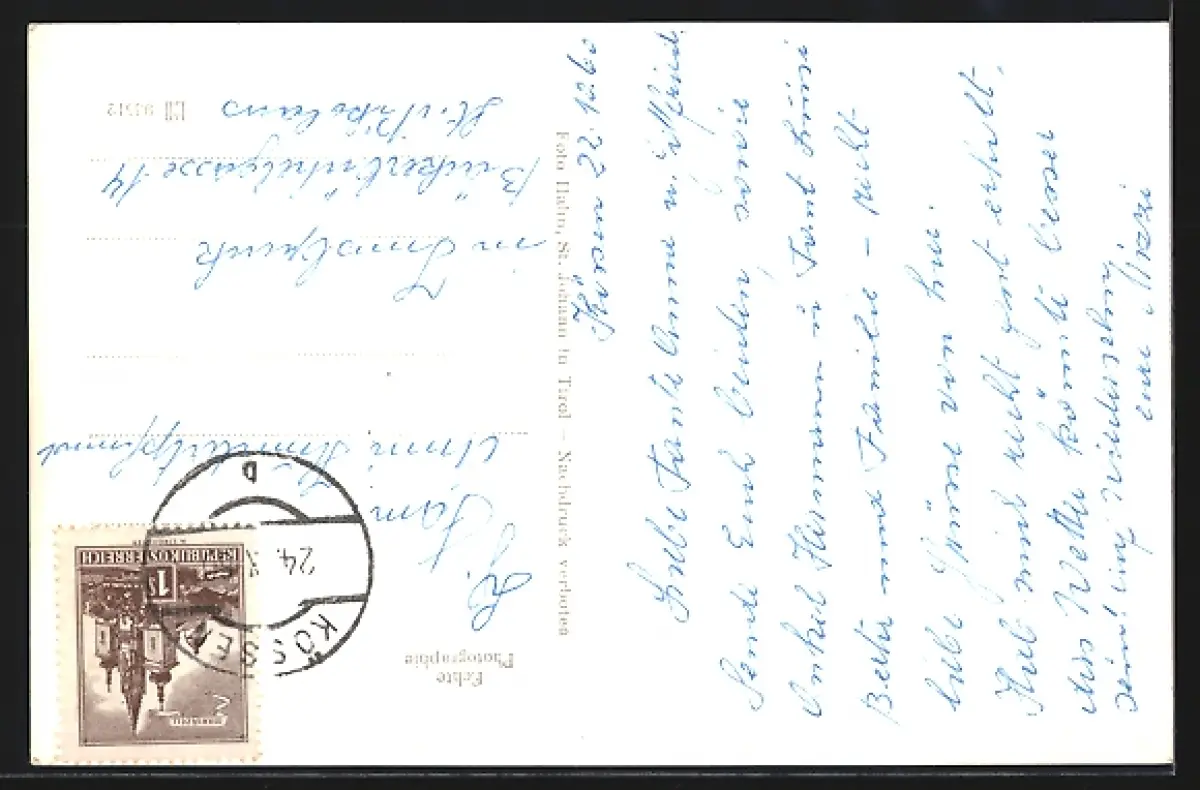 Kössen 22.12.60
Liebe Tante Anna u.
Sende Euch beiden, sowie
Onkel Hermann u Tante Luise
Beate und Familie – recht
liebe Grüsse von hier
Hab mich recht gut erholt,
das Wetter könnte besser
sein! auf Wiedersehn
eure Mizzi
Foto Hahn, St. Johann in Tirol – Nachdruck verboten
Echte
Photographie
Fam.
Anni
in Innsbruck
14
St. Nikolaus
REPUBLIK ÖSTERREICH
1S
KÖSSEN
24.
D